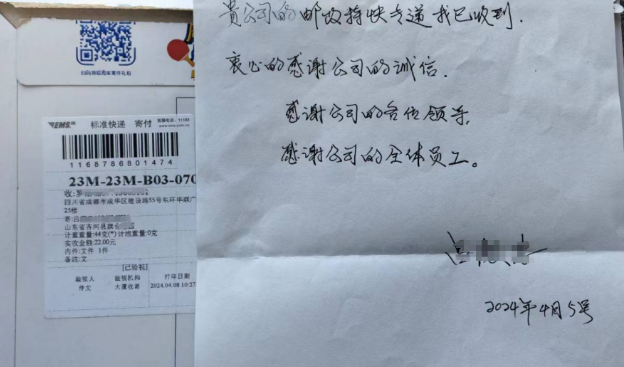 扫码领取寄件礼包
EMS 标准快递 寄付
1168786801474
23M-23M-B03-070
收:罗
四川省成都市成华区建设路55号东环华联广
25楼
寄:
山东省
计重重量:44克(*)计泡重量:0克
实收金额:22.00元
内件:文件 1件
备注:文
[已验视]
验视人 验视机构 打印日期
2024.04.08 10:27
贵公司的邮政特快专递我已收到.
衷心的感谢公司的诚信.
感谢公司的各位领导,
感谢公司的全体员工。
2024年4月5号